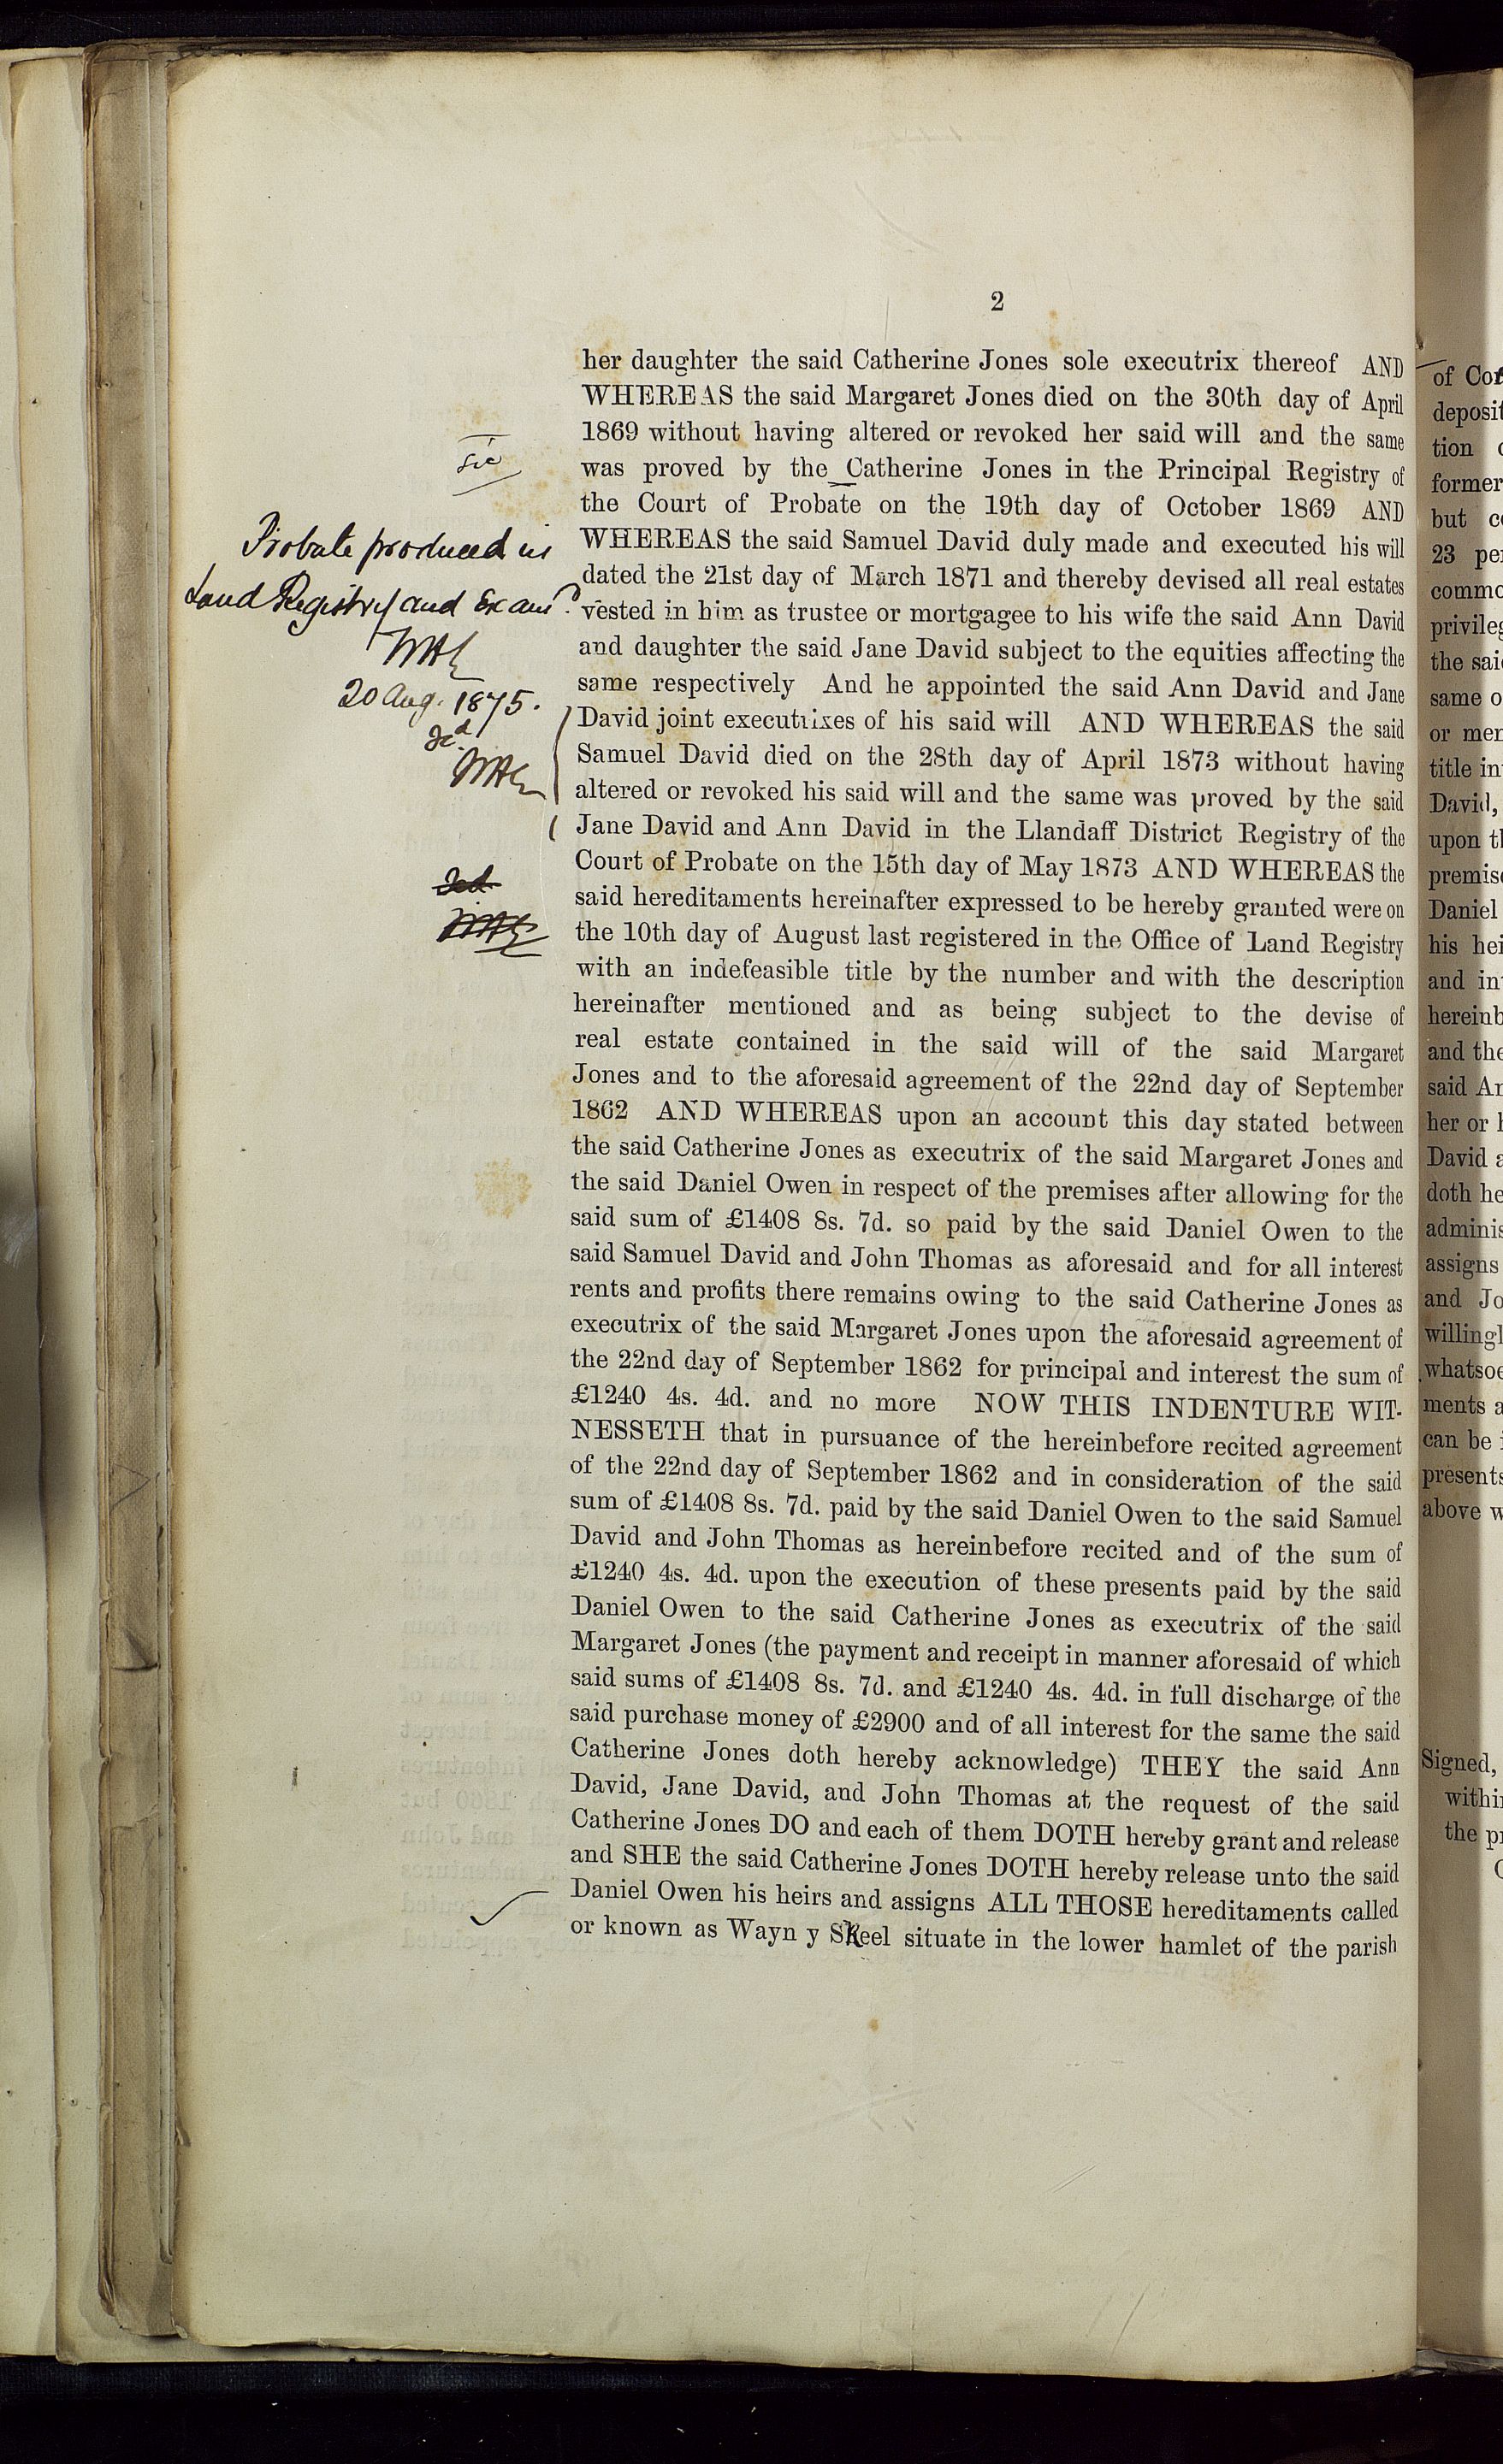 2
her daughter the said Catherine Jones sole executrix thereof AND
WHEREAS the said Margaret Jones died on the 30th day of April
1869 without having altered or revoked her said will and the same
sic
was proved by the Catherine Jones in the Principal Registry of
the Court of Probate on the 19th day of October 1869 AND
Probate produced in
Land Registry and Exam.d
20 Aug. 1875.
WHEREAS the said Samuel David duly made and executed his will
dated the 21st day of March 1871 and thereby devised all real estates
vested in him as trustee or mortgagee to his wife the said Ann David
and daughter the said Jane David subject to the equities affecting the
same respectively And he appointed the said Ann David and Jane
David joint executrixes of his said will AND WHEREAS the said
Samuel David died on the 28th day of April 1873 without having
altered or revoked his said will and the same was proved by the said
Jane David and Ann David in the Llandaff District Registry of the
Court of Probate on the 15th day of May 1873 AND WHEREAS the
said hereditaments hereinafter expressed to be hereby granted were on
the 10th day of August last registered in the Office of Land Registry
with an indefeasible title by the number and with the description
hereinafter mentioned and as being subject to the devise of
real estate contained in the said will of the said Margaret
Jones and to the aforesaid agreement of the 22nd day of September
1862 AND WHEREAS upon an account this day stated between
the said Catherine Jones as executrix of the said Margaret Jones and
the said Daniel Owen in respect of the premises after allowing for the
said sum of £1408 8s. 7d. so paid by the said Daniel Owen to the
said Samuel David and John Thomas as aforesaid and for all interest
rents and profits there remains owing to the said Catherine Jones as
executrix of the said Margaret Jones upon the aforesaid agreement of
the 22nd day of September 1862 for principal and interest the sum of
£1240 4s. 4d. and no more NOW THIS INDENTURE WIT-
NESSETH that in pursuance of the hereinbefore recited agreement
of the 22nd day of September 1862 and in consideration of the said
sum of £1408 8s. 7d. paid by the said Daniel Owen to the said Samuel
David and John Thomas as hereinbefore recited and of the sum of
£1240 4s. 4d. upon the execution of these presents paid by the said
Daniel Owen to the said Catherine Jones as executrix of the said
Margaret Jones (the payment and receipt in manner aforesaid of which
said sums of £1408 8s. 7d. and £1240 4s. 4d. in full discharge of the
said purchase money of £2900 and of all interest for the same the said
Catherine Jones doth hereby acknowledge) THEY the said Ann
David, Jane David, and John Thomas at the request of the said
Catherine Jones DO and each of them DOTH hereby grant and release
and SHE the said Catherine Jones DOTH hereby release unto the said
Daniel Owen his heirs and assigns ALL THOSE hereditaments called
or known as Wayn y Skeel situate in the lower hamlet of the parish
of
deposit
tion
former
but
23
commo
privileg
the said
same o
or mer
title
David,
upon
premise
Daniel
his hei
and
hereinb
and the
said
her or
David
doth he
adminis
assigns
and Jo
willingl
whatsoe
ments a
can be
presents
above w
Signed,
within
the